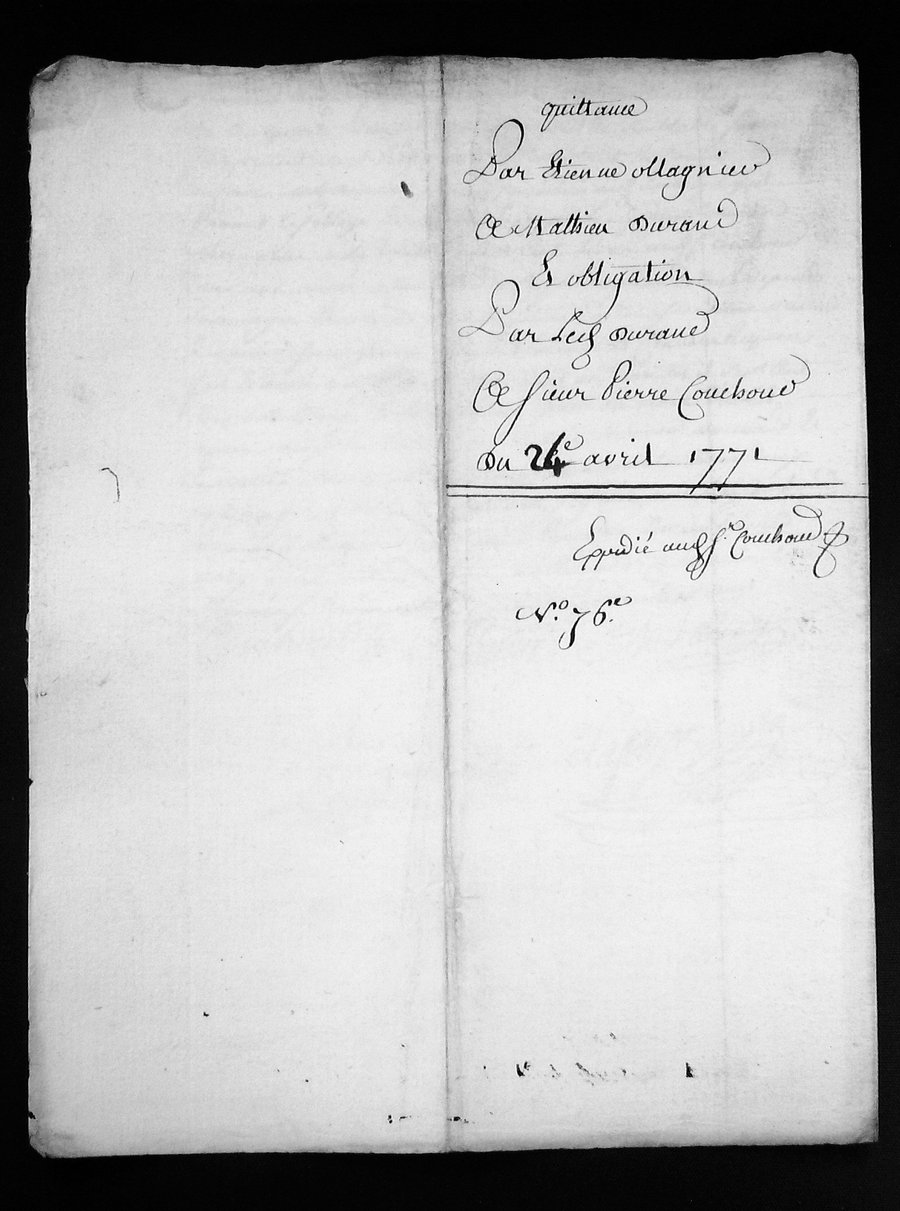 quittance
Par Etienne ollagnier
A Mathieu Durand
Et obligation
Par Led Durand
A Sieur Pierre Couchoud
Du 24e avril 1771
Expedié aud Sr Couchoud
No. 76e